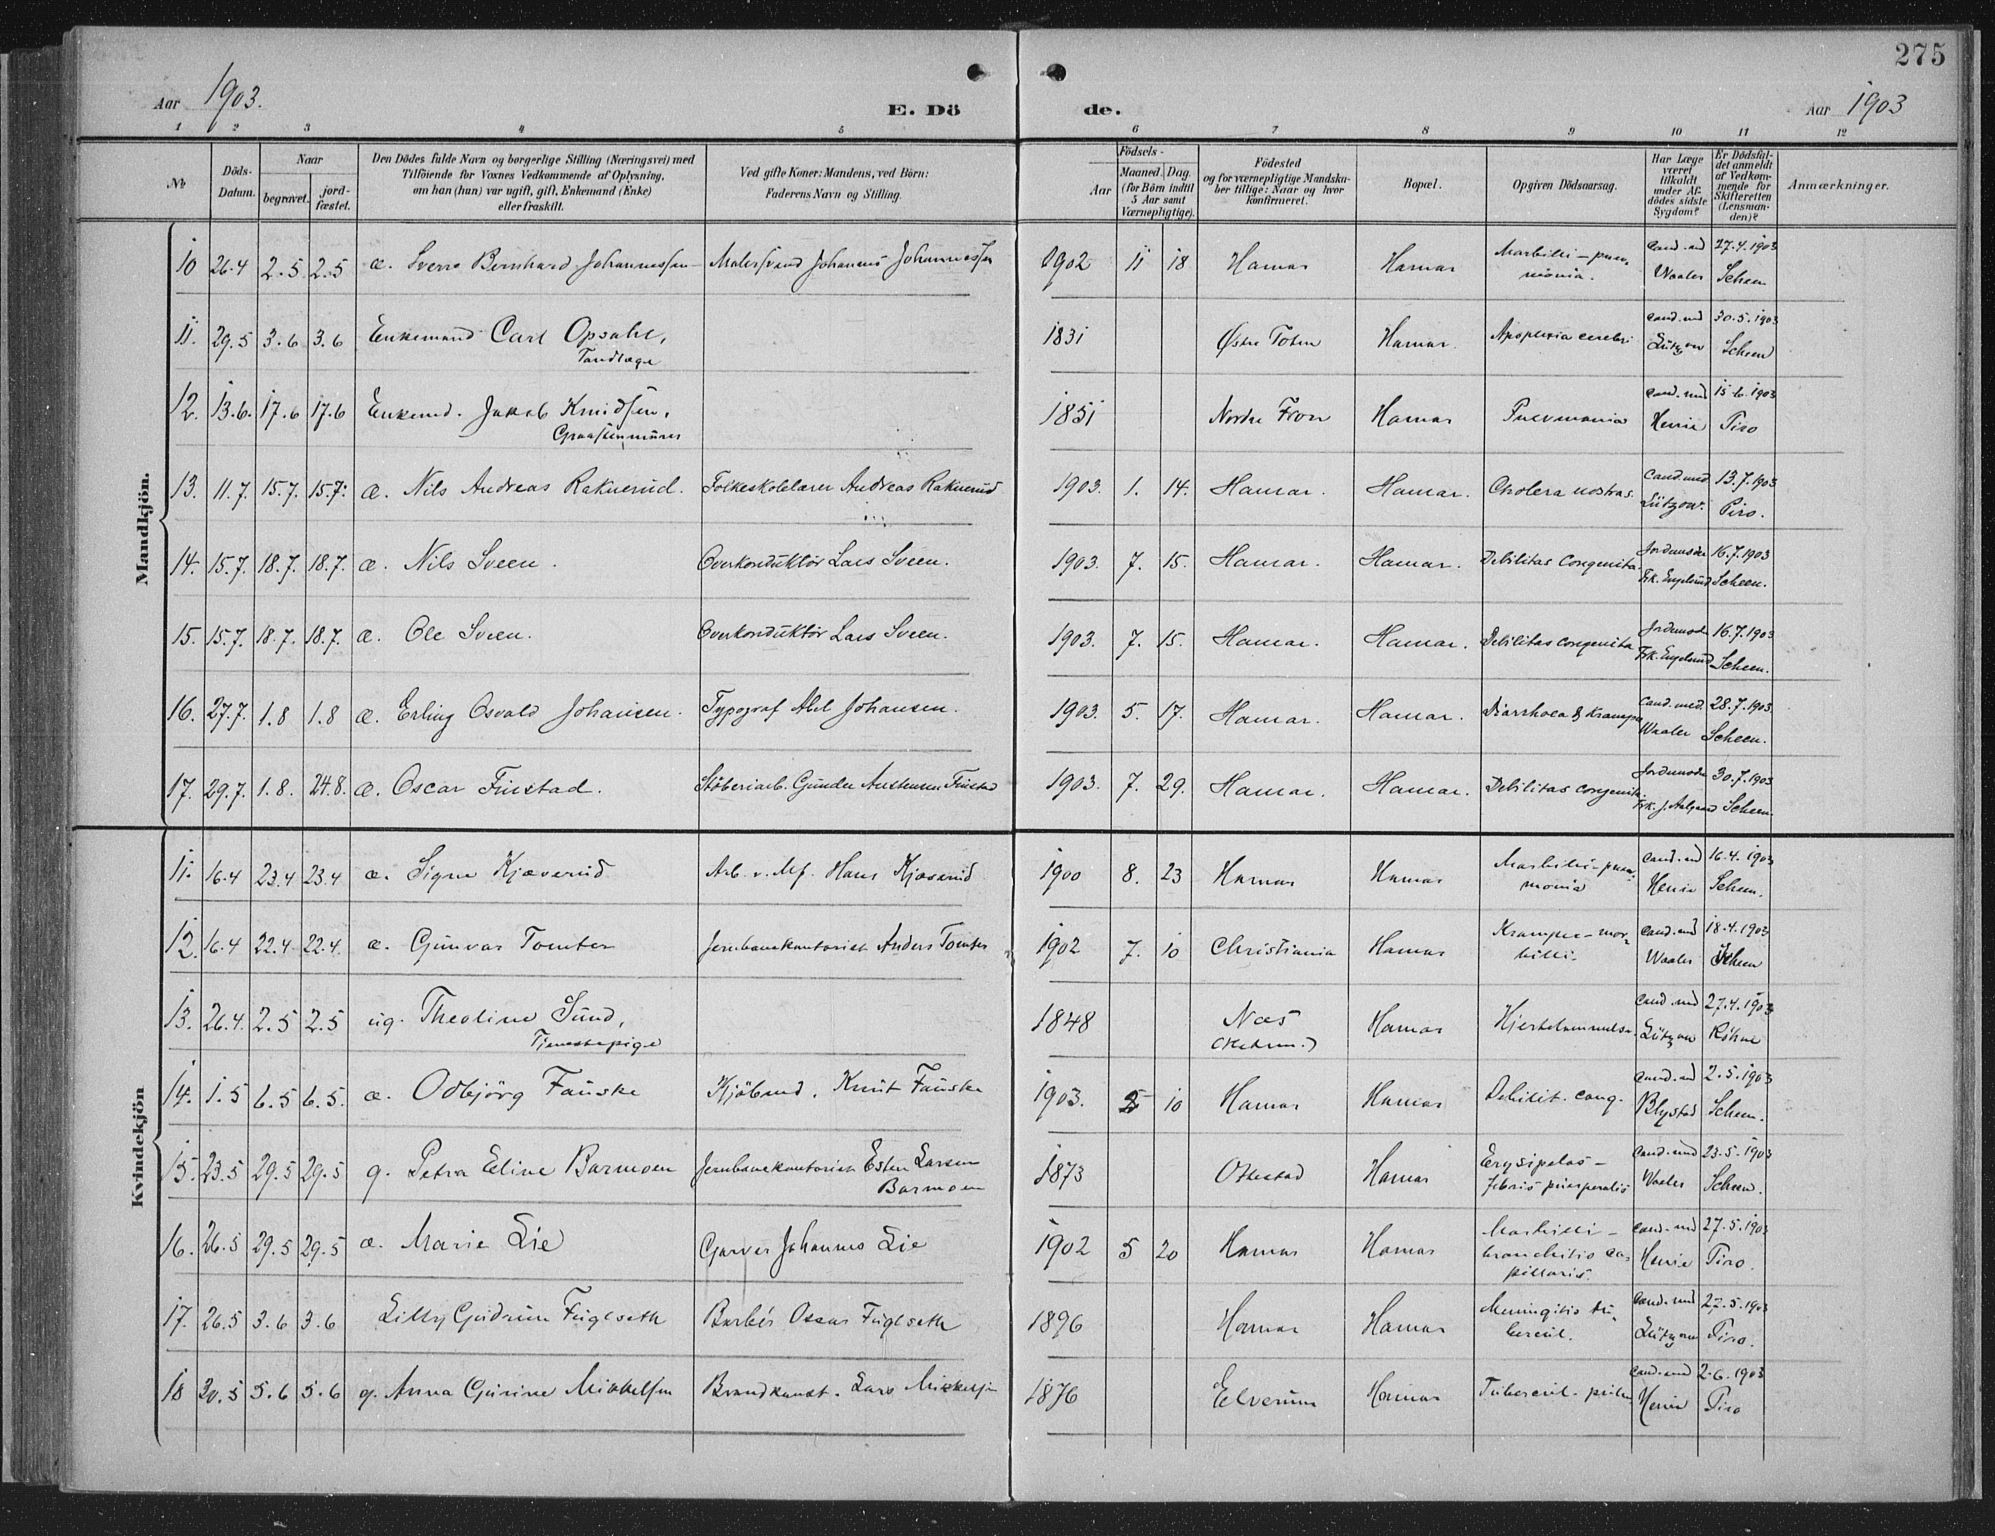 275
Aar 1903.
E. Döde.
Aar 1903
1 2 3 4 5 6 7 8 9 10 11 12
No.
Döds-Datum.
Naar
begravet.
jord-fæstet.
Den Dödes fulde Navn og borgerlige Stilling (Næringsvei) med
Tilföiende for Voxnes Vedkommende af Oplysning,
om han (hun) var ugift, gift, Enkemand (Enke)
eller fraskilt.
Ved gifte Koner: Mandens, ved Börn:
Faderens Navn og Stilling.
Födsels-
Aar
Maaned. Dag.
(for Börn indtil
5 Aar samt
Værnepligtige).
Födested
og for værnepligtige Mandska-
ber tillige: Naar og hvor
konfirmeret.
Bopæl.
Opgiven Dödsaarsag.
Har Læge
været
tilkaldt
under Af-
dödes sidste
Sygdom?
Er Dödsfal-
det anmeldt
af Vedkom-
mende for
Skifteretten
(Lensman-
den)?
Anmærkninger.
Mandkjön.
10 26.4 2.5 2.5 æ. Sverre Bernhard Johannessen Malersvend Johannes Johannessen 1902 11 18 Hamar Hamar Morbilli - pneumonia. cand. med Waaler 27.4.1903 Scheen
11. 29.5 3.6 3.6 Enkemand Carl Opsahl, Tandlæge 1831 Østre Toten Hamar. Apoplexia cerebri cand. med Lützow 30.5.1903 Scheen
12. 13.6. 17.6 17.6 Enkemd. Jakob Knudsen, Graastensmurer 1851 Nordre Fron Hamar Pneumonia cand. med Henie 15.6.1903 Piro
13. 11.7. 15.7. 15.7. æ. Nils Andreas Raknerud. Folkeskolelærer Andreas Raknerud 1903. 1. 14. Hamar. Hamar. Cholera nostras. Cand. med Lützow. 13.7.1903 Piro.
14. 15.7. 18.7. 18.7. æ. Nils Sveen. Overkonduktör Lars Sveen. 1903. 7. 15. Hamar. Hamar. Debilitas congenita. Jordemoder Frk. Engelund 16.7.1903 Scheen.
15. 15.7. 18.7. 18.7. æ. Ole Sveen. Overkonduktör Lars Sveen. 1903. 7. 15. Hamar. Hamar. Debilitas congenita Jordemoder Frk. Engelund 16.7.1903 Scheen.
16. 27.7. 1.8 1.8 æ. Erling Osvald Johansen. Typograf Abel Johansen. 1903. 5. 17. Hamar. Hamar. Diarrhoea & Krampe cand. med. Waaler 28.7.1903. Scheen.
17. 29.7. 1.8. 24.8. æ. Oscar Finstad. Stöberiarb. Gunder Austensen Finstad 1903. 7. 29. Hamar. Hamar. Debilitas congenita Jordemoder Frk. J. Aalgaard 30.7.1903 Scheen.
Kvindekjön
11. 16.4 23.4 23.4 æ. Signe Kjæverud Arb. v. Mf. Hans Kjæverud 1900 8. 23 Hamar Hamar Morbilli - pneumonia cand. md Henie 16.4.1903 Scheen.
12. 16.4 22.4 22.4. æ. Gunvar Tomter Jernbanekontorist Anders Tomter 1902 7. 10 Christiania Hamar Krampe - morbilli. cand. med Waaler 18.4.1903 Scheen
13. 26.4. 2.5 2.5 ug. Theoline Sund, Tjenestepige 1848 Næs (Hedem.) Hamar Hjertelammelse. cand. med Lützow 27.4.1903 Röhne
14. 1.5 6.5 6.5. æ. Odbjörg Fauske Kjöbmd. Knut Fauske 1903. 10 Hamar Hamar Debilit. cong. cand. md Blystad 2.5.1903 Scheen.
15. 23.5 29.5 29.5 g. Petra Eline Barmoen Jernbanekontorist Esten Larsen Barmoen 1873 Ottestad Hamar Erysipelas - febris puerperalis cand. med Waaler 23.5.1903 Scheen.
16. 26.5 29.5 29.5 æ. Marie Lie Garver Johannes Lie 1902 5 20 Hamar Hamar Morbilli - bronchitis capillaris. cand. med Henie 27.5.1903 Piro.
17. 26.5 3.6 3.6 Lilly Gudrun Fuglseth Barbér Oscar Fuglseth 1896 Hamar Hamar Meningitis tubercul. cand. med Lützow 27.5.1903 Piro.
18 30.5 5.6 5.6 g. Anna Gurine Mikkelsen Brandkonst. Lars Mikkelsen 1876 Elverum Hamar Tubercul. pulm. cand. med Henie 2.6.1903 Piro